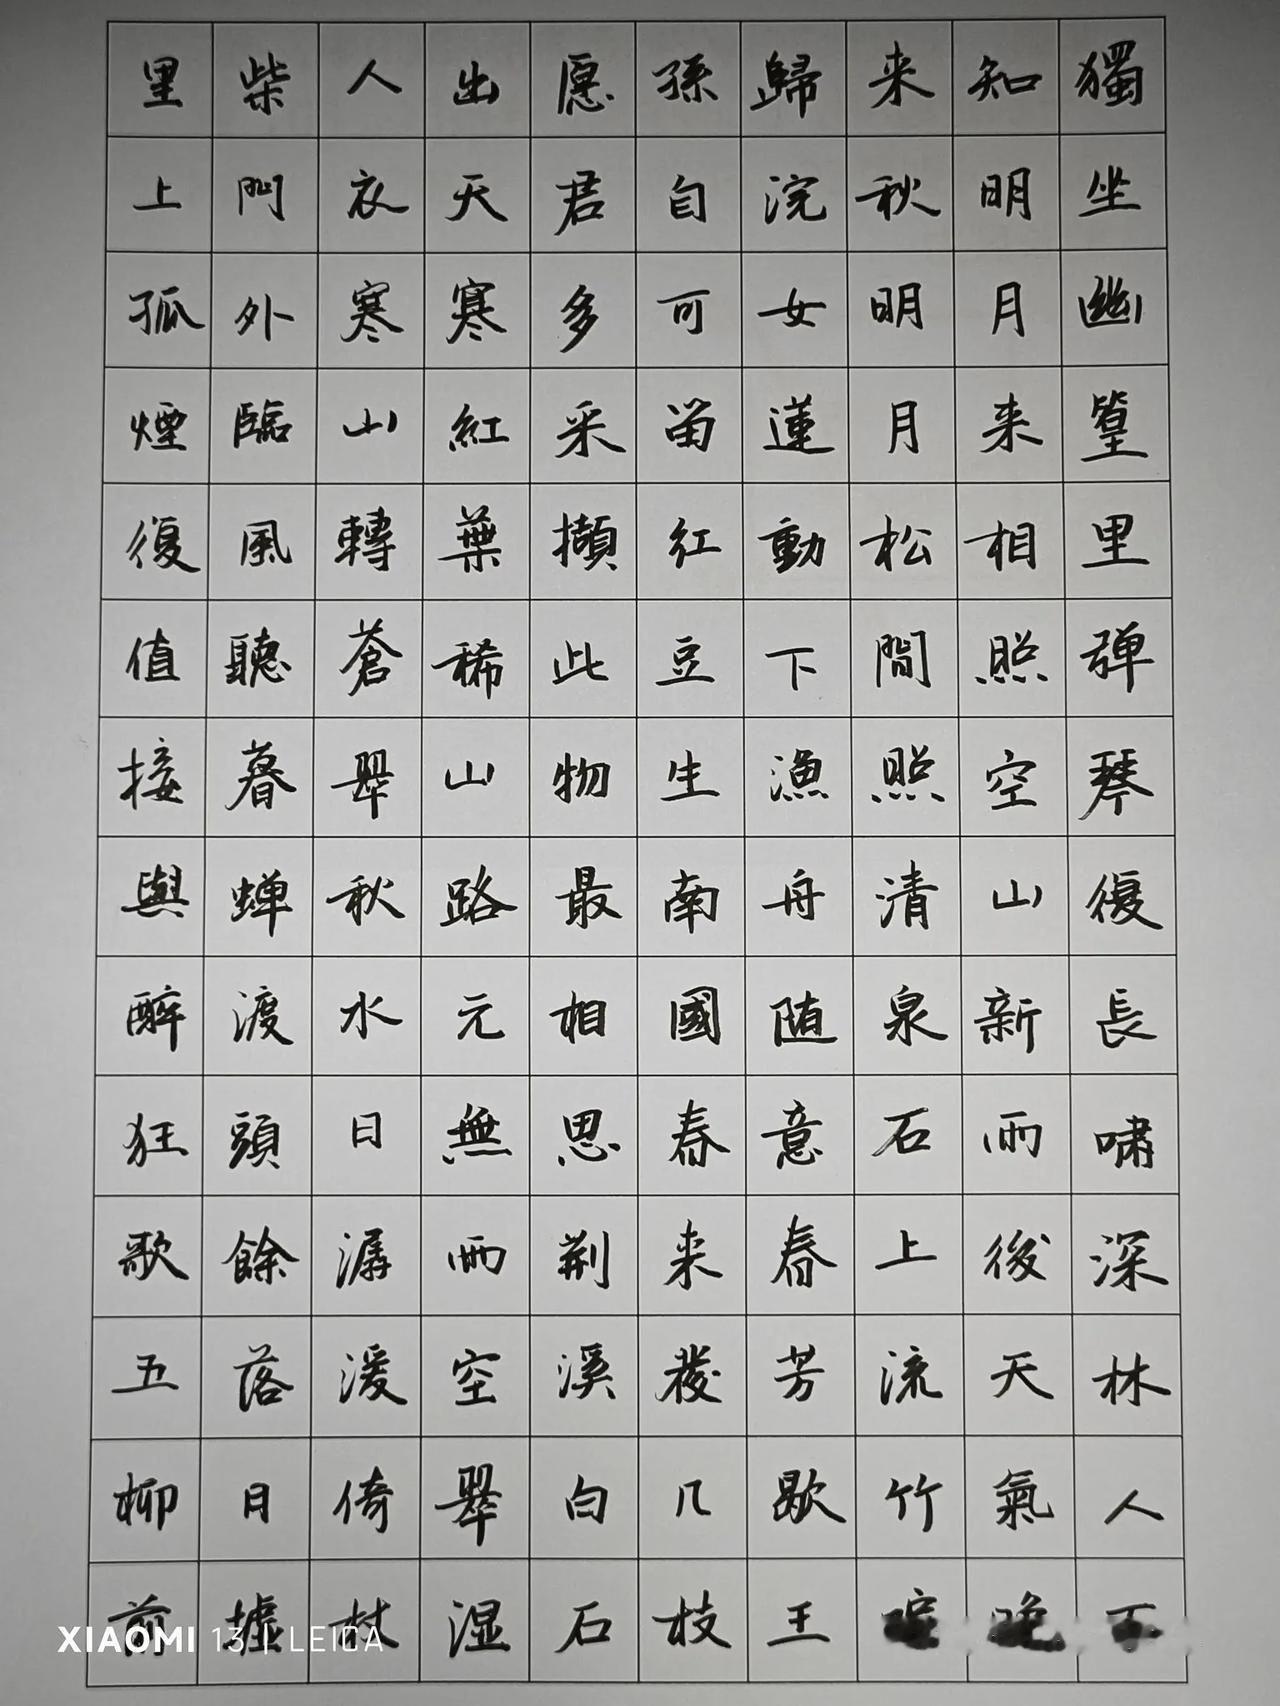 獨坐幽篁里弹琴復長啸深林人不
知明月来相照空山新雨後天氣晚
来秋明月松間照清泉石上流竹喧
歸浣女蓮動下漁舟随意春芳歇王
孫自可留红豆生南國春来發几枝
愿君多采擷此物最相思荆溪白石
出天寒紅葉稀山路元無雨空翠湿
人衣寒山轉蒼翠秋水日潺湲倚杖
柴門外臨風聽暮蝉渡頭餘落日墟
里上孤煙復值接與醉狂歌五柳前
XIAOMI 13 | LEICA